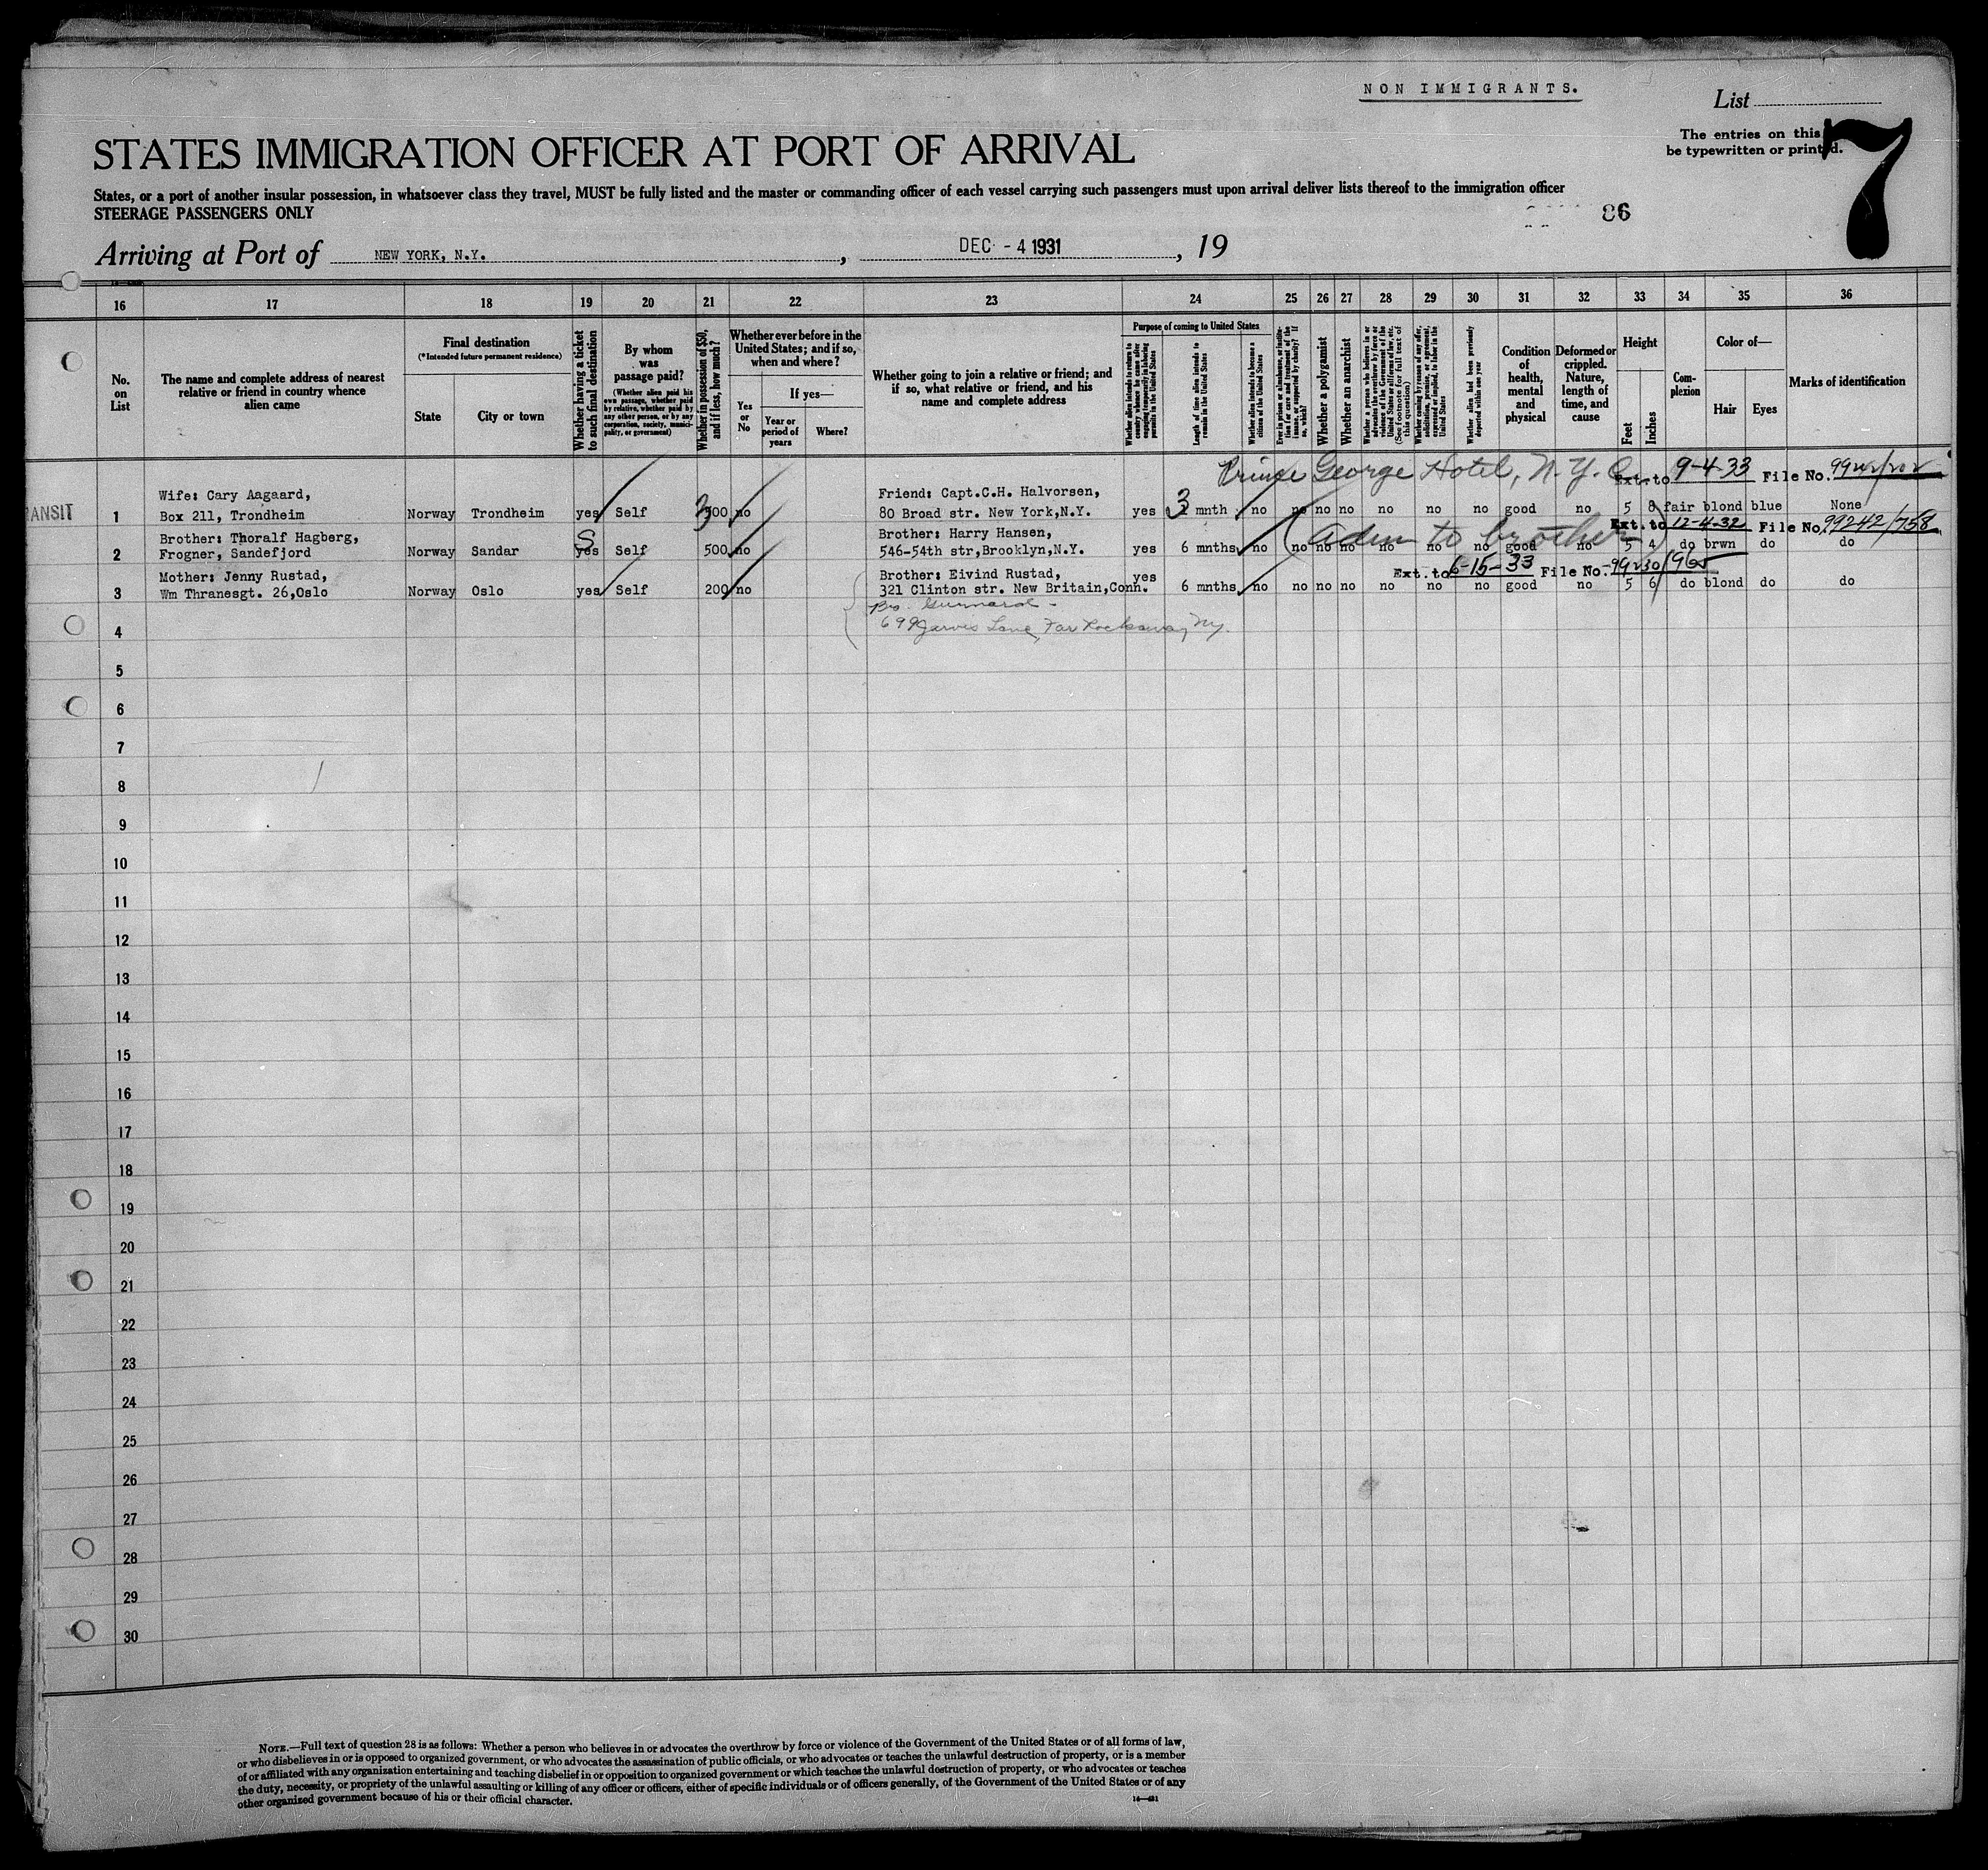 NON IMMIGRANTS.
List
The entries on this
be typewritten or printed.
7
STATES IMMIGRATION OFFICER AT PORT OF ARRIVAL
States, or a port of another insular possession, in whatsoever class they travel, MUST be fully listed and the master or commanding officer of each vessel carrying such passengers must upon arrival deliver lists thereof to the immigration officer
STEERAGE PASSENGERS ONLY
86
Arriving at Port of NEW YORK, N.Y. , DEC - 4 1931 , 19
16 17 18 19 20 21 22 23 24 25 26 27 28 29 30 31 32 33 34 35 36
No. on List
The name and complete address of nearest relative or friend in country whence alien came
Final destination
(*Intended future permanent residence)
State
City or town
Whether having a ticket to such final destination
By whom was passage paid?
(Whether alien paid his own passage, whether paid by relative, whether paid by any other person, or by any corporation, society, municipality, or government)
Whether in possession of $50, and if less, how much?
Whether ever before in the United States; and if so, when and where?
Yes or No
If yes—
Year or period of years
Where?
Whether going to join a relative or friend; and if so, what relative or friend, and his name and complete address
Purpose of coming to United States
Whether alien intends to return to country whence he came after engaging temporarily in laboring pursuits in the United States
Length of time alien intends to remain in the United States
Whether alien intends to become a citizen of the United States
Ever in prison or almshouse, or institution for care and treatment of the insane, or supported by charity? If so, which?
Whether a polygamist
Whether an anarchist
Whether a person who believes in or advocates the overthrow by force or violence of the Government of the United States or all forms of law, etc. (See footnote for full text of this question)
Whether coming by reason of any offer, solicitation, promise, or agreement, expressed or implied, to labor in the United States
Whether alien had been previously deported within one year
Condition of health, mental and physical
Deformed or crippled. Nature, length of time, and cause
Height
Feet
Inches
Complexion
Color of—
Hair
Eyes
Marks of identification
Prince George Hotel, N.Y.C. Ext. to 9-4-33 File No.
Wife: Cary Aagaard, Friend: Capt.C.H. Halvorsen,
RANSIT 1 Box 211, Trondheim Norway Trondheim yes Self 300 no 80 Broad str. New York,N.Y. yes 3 mnth no no no no no no no good no 5 8 fair blond blue None
Ext. to 12-4-32 File No. 99242/758
Brother: Thoralf Hagberg, S Brother: Harry Hansen, (Adm to brother)
2 Frogner, Sandefjord Norway Sandar yes Self 500 no 546-54th str,Brooklyn,N.Y. yes 6 mnths no no no no no no no good no 5 4 do brwn do do
Ext. to 6-15-33 File No. 99230/965
Mother: Jenny Rustad, Brother: Eivind Rustad, yes
3 Wm Thranesgt. 26,Oslo Norway Oslo yes Self 200 no 321 Clinton str. New Britain,Conn. 6 mnths no no no no no no no good no 5 6 do blond do do
Bro. Gunnard -
4 699 Jarvis Lane, Far Rockaway, Ny.
5
6
7
8
9
10
11
12
13
14
15
16
17
18
19
20
21
22
23
24
25
26
27
28
29
30
NOTE.—Full text of question 28 is as follows: Whether a person who believes in or advocates the overthrow by force or violence of the Government of the United States or of all forms of law,
or who disbelieves in or is opposed to organized government, or who advocates the assassination of public officials, or who advocates or teaches the unlawful destruction of property, or is a member
of or affiliated with any organization entertaining and teaching disbelief in or opposition to organized government or which teaches the unlawful destruction of property, or who advocates or teaches
the duty, necessity, or propriety of the unlawful assaulting or killing of any officer or officers, either of specific individuals or of officers generally, of the Government of the United States or of any
other organized government because of his or their official character.